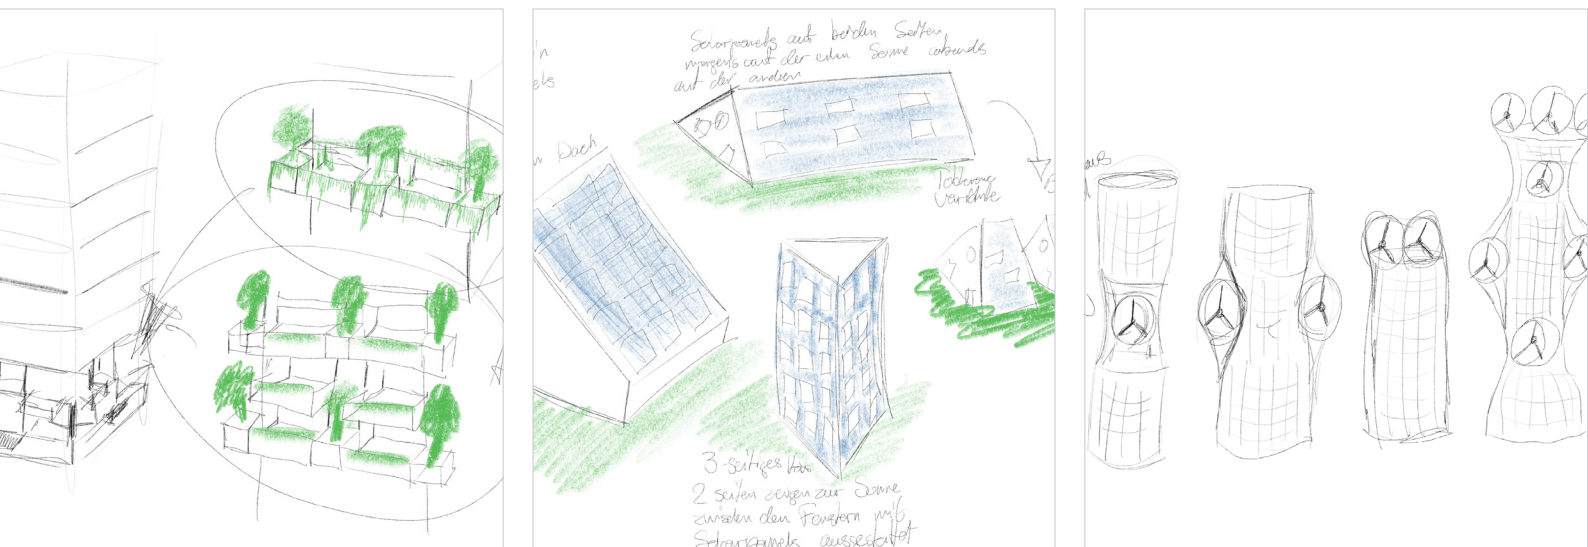 Solarpanels auf beiden Seiten
morgens auf der einen Sonne abends
auf der andern
Dach
3-seitiges Haus
2 seiten zeigen zur Sonne
zwischen den Fenstern mit
Solarpanels ausgestattet